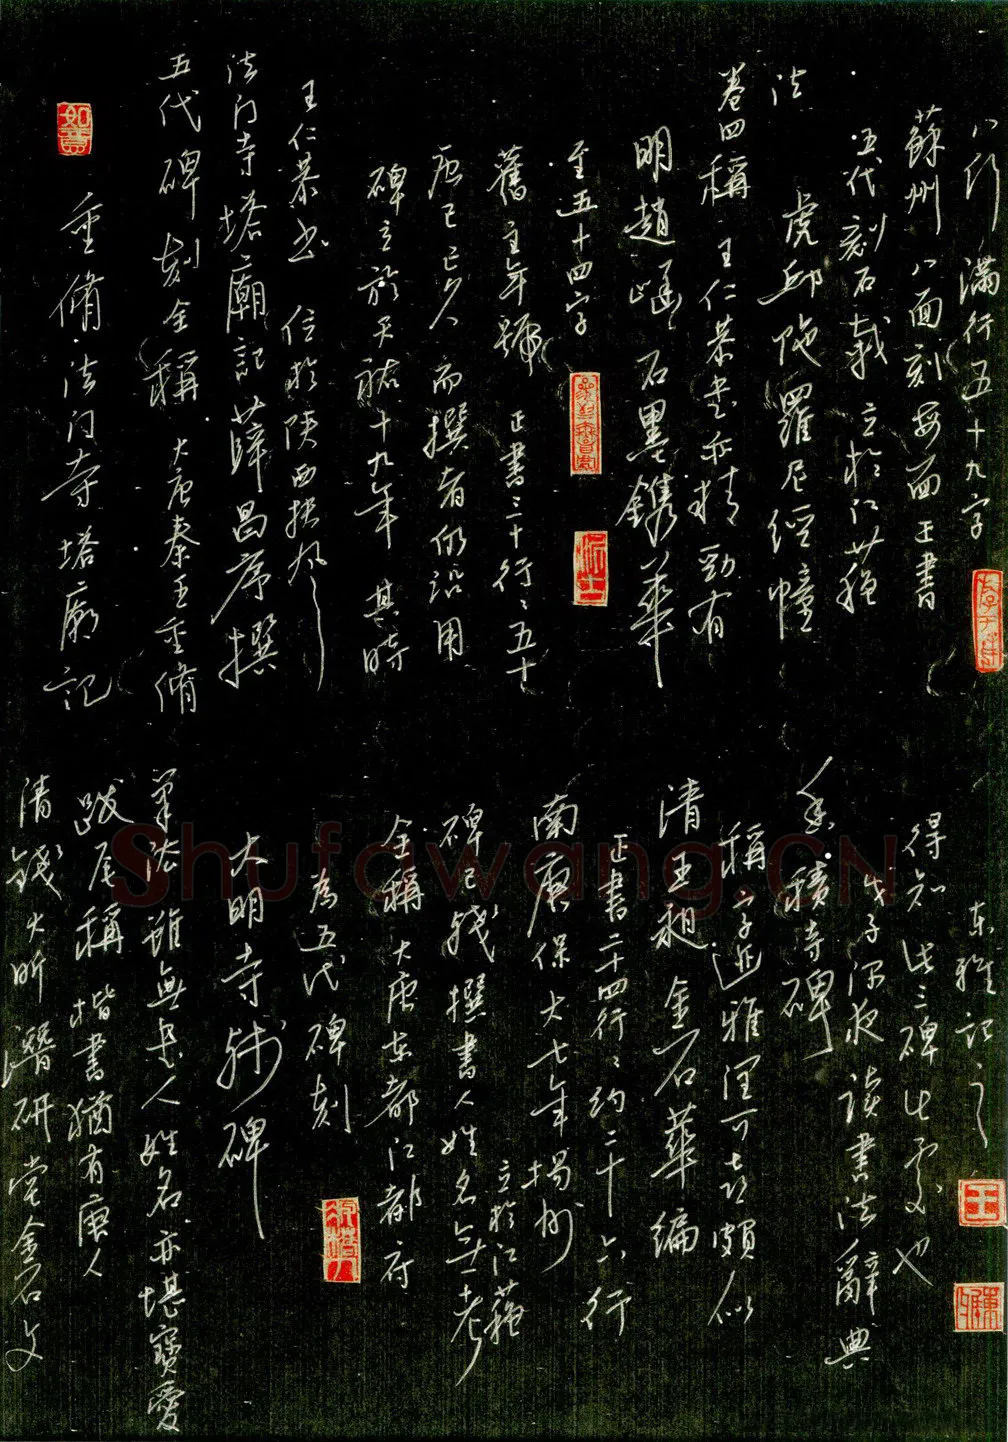 重脩法门寺塔廟記
五代碑刻全稱 大唐秦王重脩
法门寺塔廟記 薛昌序撰
王仁恭书 位於陝西扶风
碑立於天祐十九年 其時
唐已亡久 而撰者仍沿用
舊主年號 正書三十行〻五十
至五十四字
明趙崡石墨鐫華
卷四稱 王仁恭書亦精勁有
法
虎邱陁羅尼經幢
五代刻石載 立於江蘇
蘇州 八面刻每面正書
八行 滿行五十九字
清錢大昕潛研堂金石文
跋尾稱 楷書猶有唐人
筆法雖無書人姓名亦堪寶愛
大明寺殘碑
為五代碑刻
全稱 大唐東都江都府
碑已殘 撰書人姓名無考
立於江蘇
南唐保大七年揚州
正書二十四行〻約二十六行
清王昶金石萃編
稱字近雅潔可喜頗似
香積寺碑
戊子深夜读書法辭典
得知此三碑之處也
東雅記之
Shufawang.CN